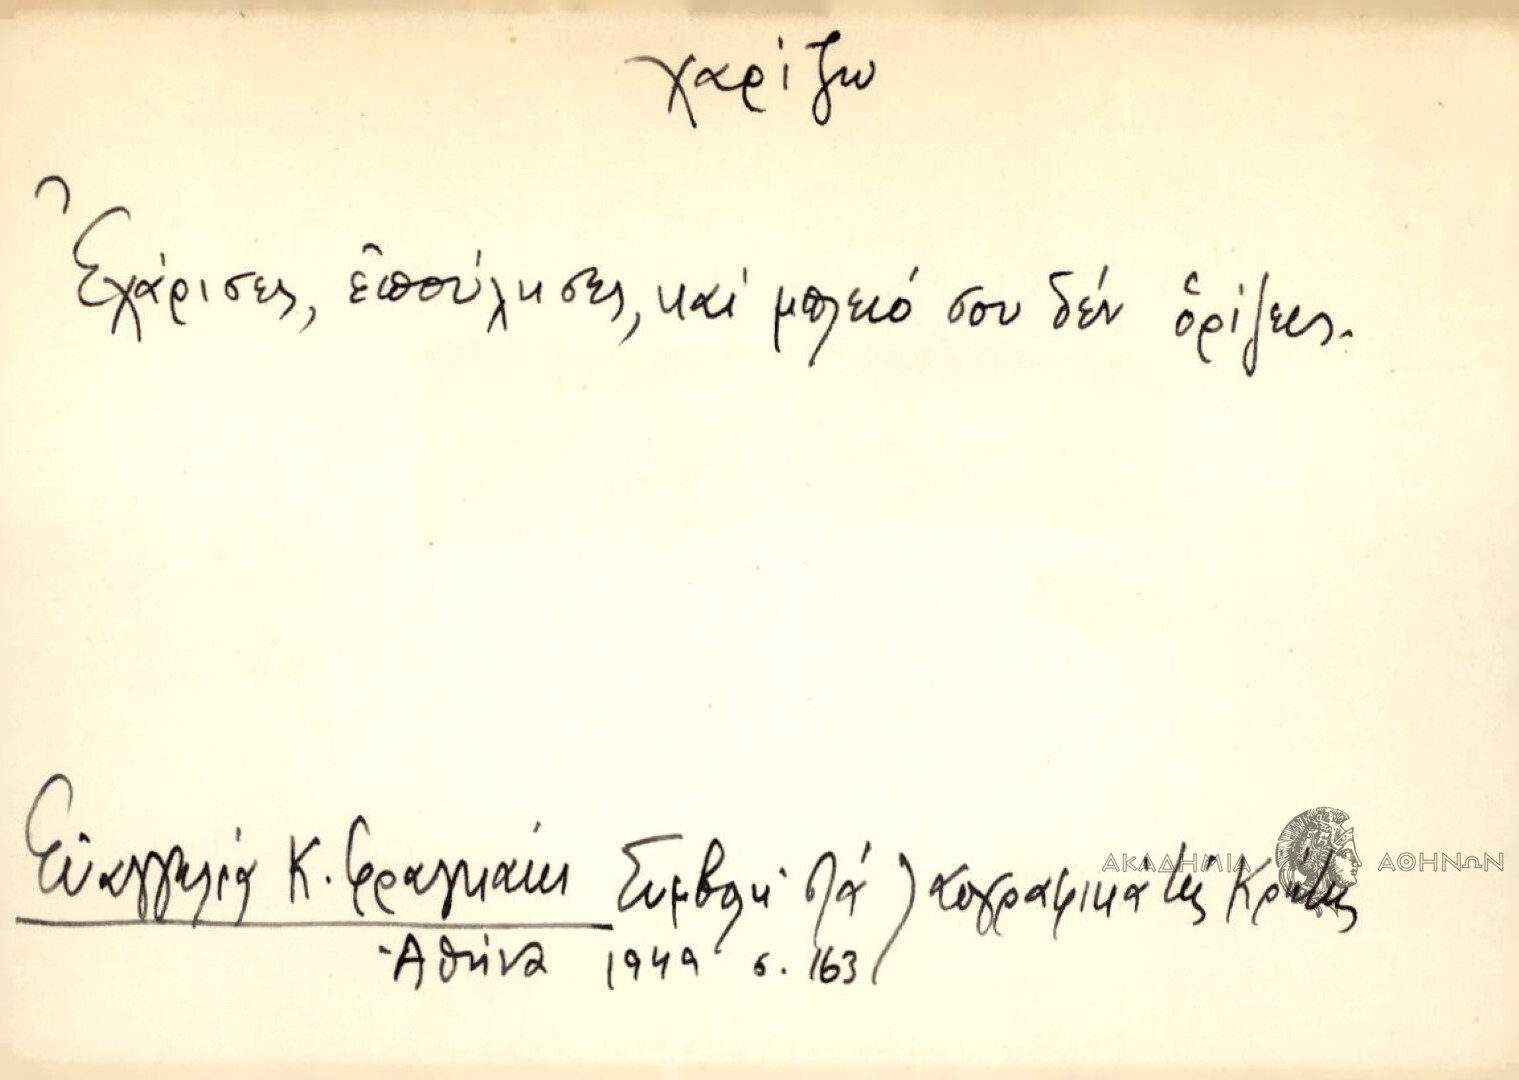 χαρίζω
Ἐχάρισες, ἐπούλησες, καί μπλειό σου δέν ὁρίζεις.
Εὐαγγελία Κ. Φραγκάκι Συμβολή στά λαογραφικά τῆς Κρήτης
Ἀθήνα 1949 σ. 163
ΑΚΑΔΗΜΙΑ ΑΘΗΝΩΝ